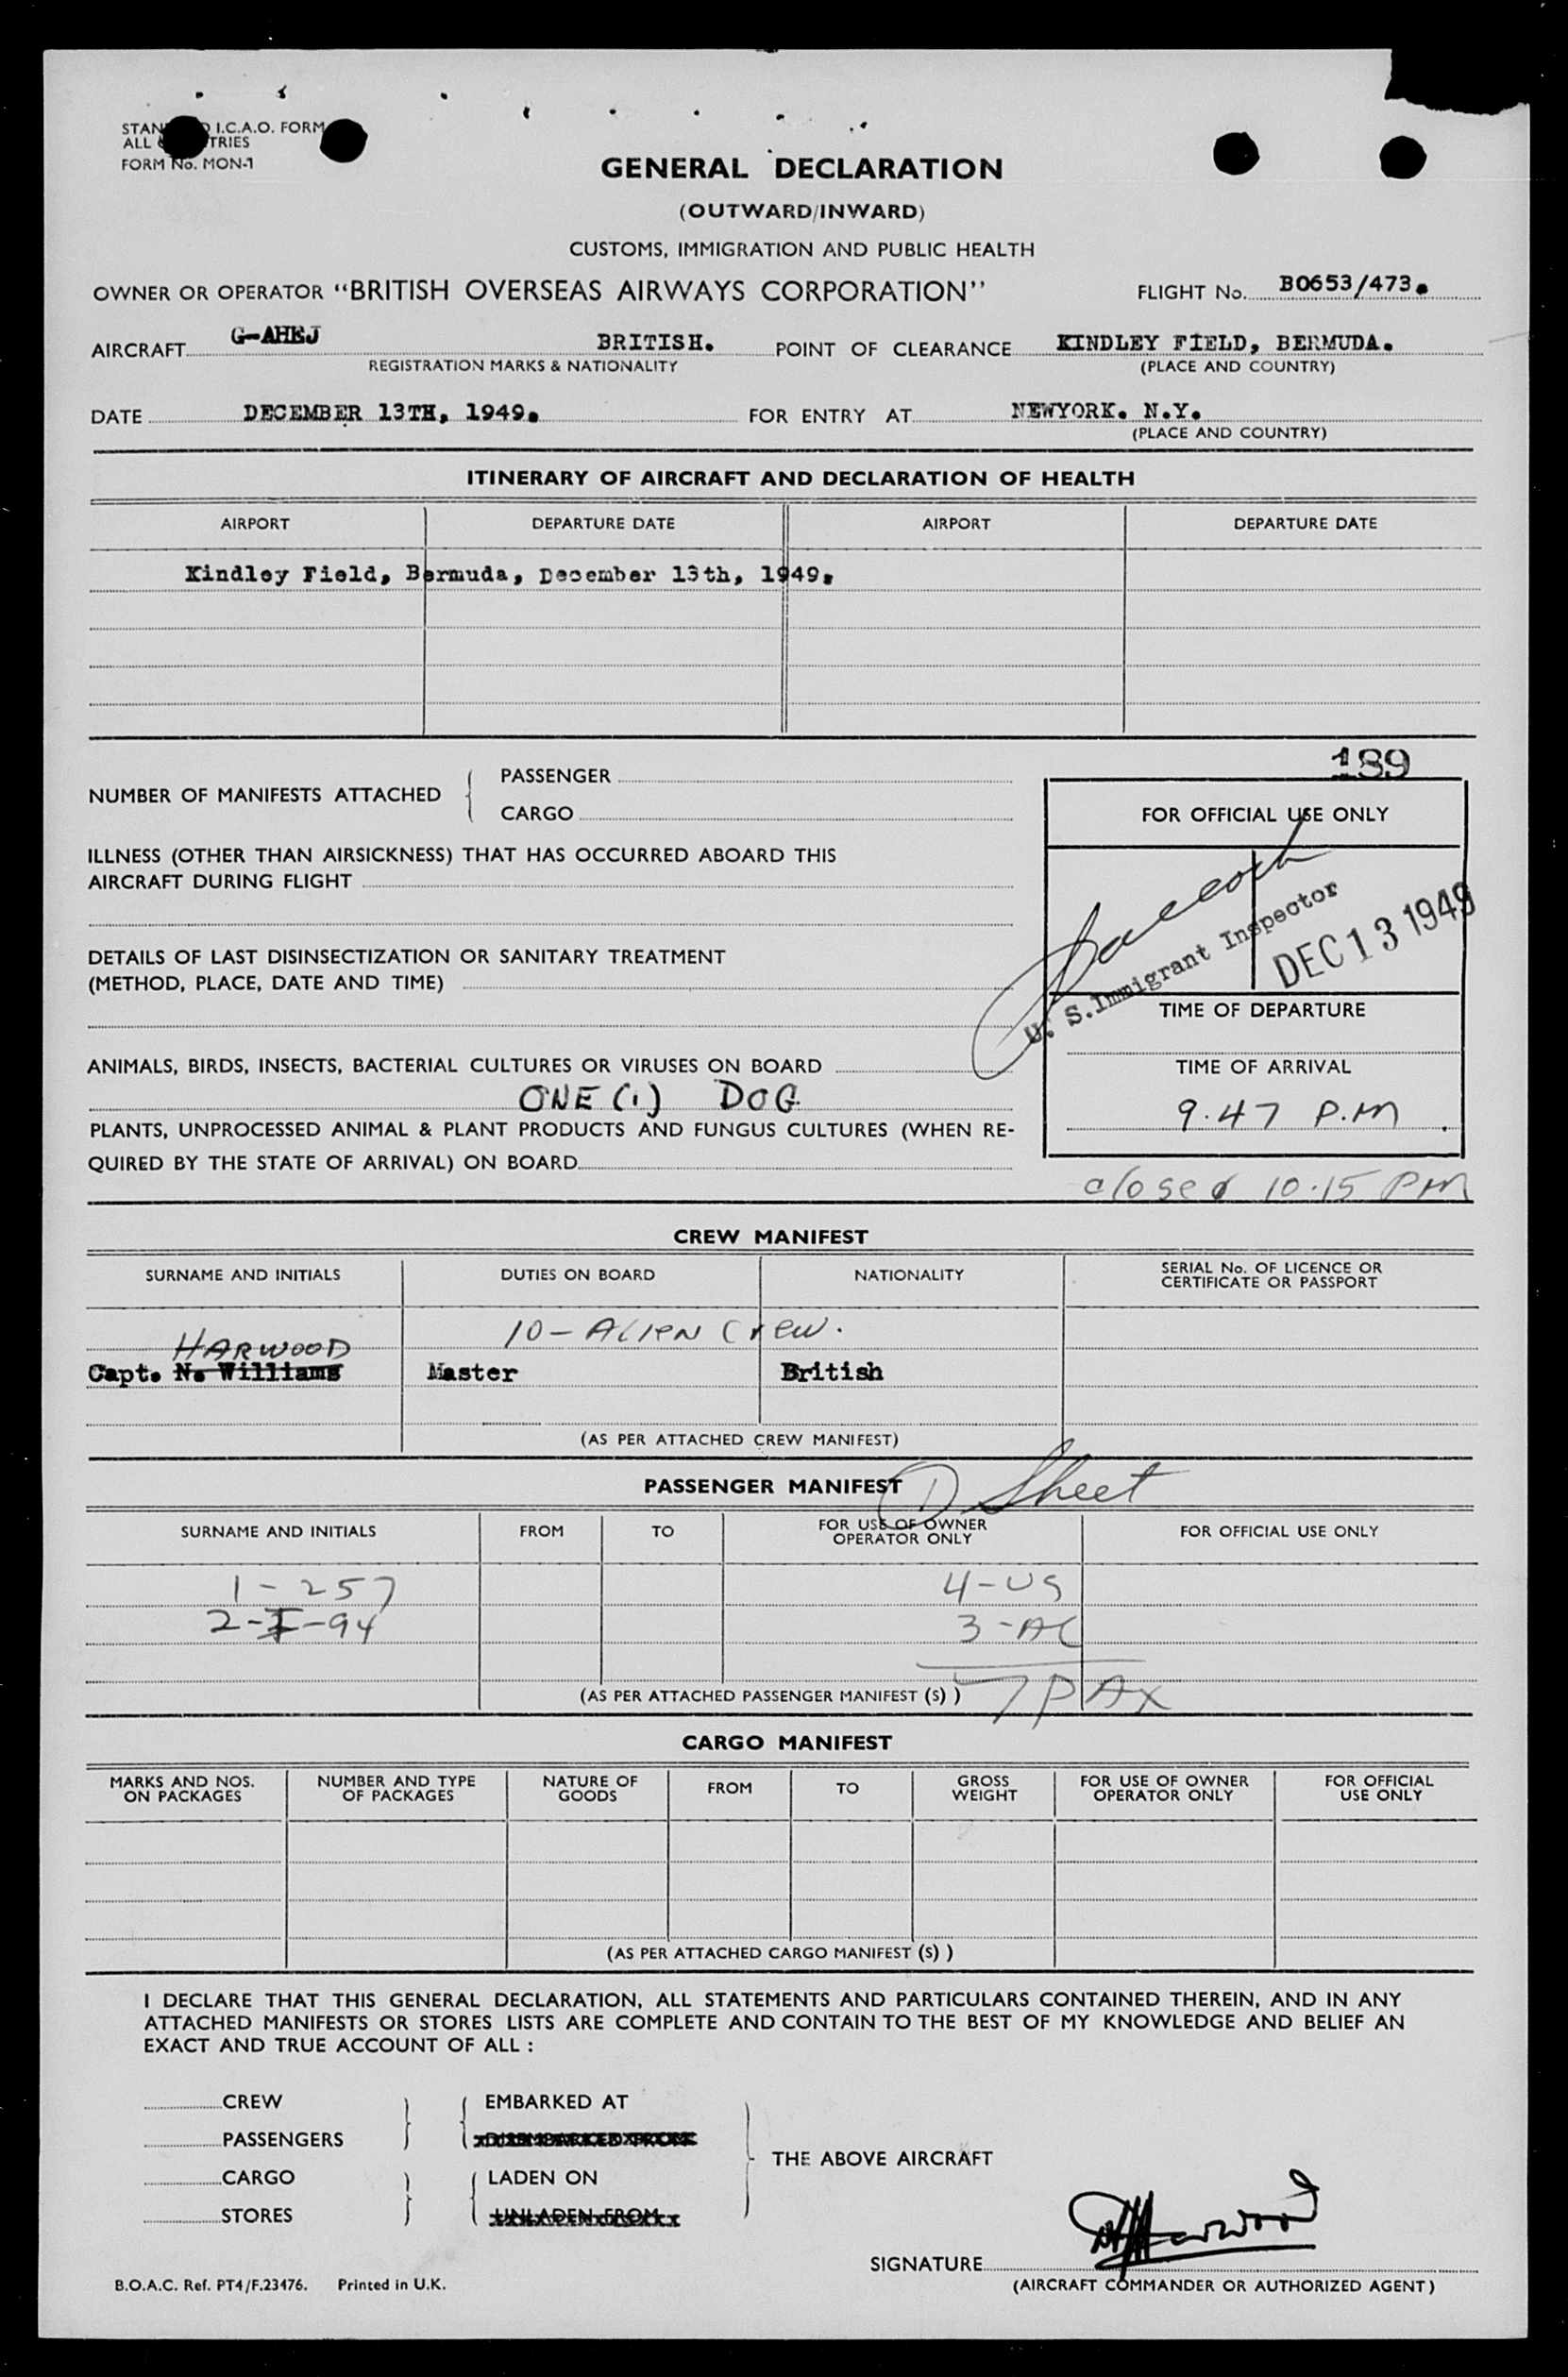 STAN D I.C.A.O. FORM
ALL TRIES
FORM No. MON-1
GENERAL DECLARATION
(OUTWARD/INWARD)
CUSTOMS, IMMIGRATION AND PUBLIC HEALTH
OWNER OR OPERATOR "BRITISH OVERSEAS AIRWAYS CORPORATION" FLIGHT No. BO653/473.
AIRCRAFT G-AHEJ BRITISH. POINT OF CLEARANCE KINDLEY FIELD, BERMUDA.
REGISTRATION MARKS & NATIONALITY (PLACE AND COUNTRY)
DATE DECEMBER 13TH, 1949. FOR ENTRY AT NEWYORK. N.Y.
(PLACE AND COUNTRY)
ITINERARY OF AIRCRAFT AND DECLARATION OF HEALTH
AIRPORT DEPARTURE DATE AIRPORT DEPARTURE DATE
Kindley Field, Bermuda, December 13th, 1949.
189
NUMBER OF MANIFESTS ATTACHED { PASSENGER
CARGO
FOR OFFICIAL USE ONLY
ILLNESS (OTHER THAN AIRSICKNESS) THAT HAS OCCURRED ABOARD THIS
AIRCRAFT DURING FLIGHT
U. S. Immigrant Inspector
DEC 13 1949
DETAILS OF LAST DISINSECTIZATION OR SANITARY TREATMENT
(METHOD, PLACE, DATE AND TIME)
TIME OF DEPARTURE
ANIMALS, BIRDS, INSECTS, BACTERIAL CULTURES OR VIRUSES ON BOARD
TIME OF ARRIVAL
ONE (1) DOG
9.47 P.M
PLANTS, UNPROCESSED ANIMAL & PLANT PRODUCTS AND FUNGUS CULTURES (WHEN RE-
QUIRED BY THE STATE OF ARRIVAL) ON BOARD
closed 10.15 PM
CREW MANIFEST
SURNAME AND INITIALS DUTIES ON BOARD NATIONALITY SERIAL No. OF LICENCE OR
CERTIFICATE OR PASSPORT
10 - ALIEN Crew.
HARWOOD
Capt. N. Williams Master British
(AS PER ATTACHED CREW MANIFEST)
PASSENGER MANIFEST 1 Sheet
SURNAME AND INITIALS FROM TO FOR USE OF OWNER
OPERATOR ONLY FOR OFFICIAL USE ONLY
1 - 257 4 - US
2-I-94 3 - AL
7 PAX
(AS PER ATTACHED PASSENGER MANIFEST (S) )
CARGO MANIFEST
MARKS AND NOS.
ON PACKAGES NUMBER AND TYPE
OF PACKAGES NATURE OF
GOODS FROM TO GROSS
WEIGHT FOR USE OF OWNER
OPERATOR ONLY FOR OFFICIAL
USE ONLY
(AS PER ATTACHED CARGO MANIFEST (S) )
I DECLARE THAT THIS GENERAL DECLARATION, ALL STATEMENTS AND PARTICULARS CONTAINED THEREIN, AND IN ANY
ATTACHED MANIFESTS OR STORES LISTS ARE COMPLETE AND CONTAIN TO THE BEST OF MY KNOWLEDGE AND BELIEF AN
EXACT AND TRUE ACCOUNT OF ALL :
CREW EMBARKED AT
PASSENGERS DISEMBARKED FROM
THE ABOVE AIRCRAFT
CARGO LADEN ON
STORES UNLADEN FROM
SIGNATURE Harwood
B.O.A.C. Ref. PT4/F.23476. Printed in U.K. (AIRCRAFT COMMANDER OR AUTHORIZED AGENT)